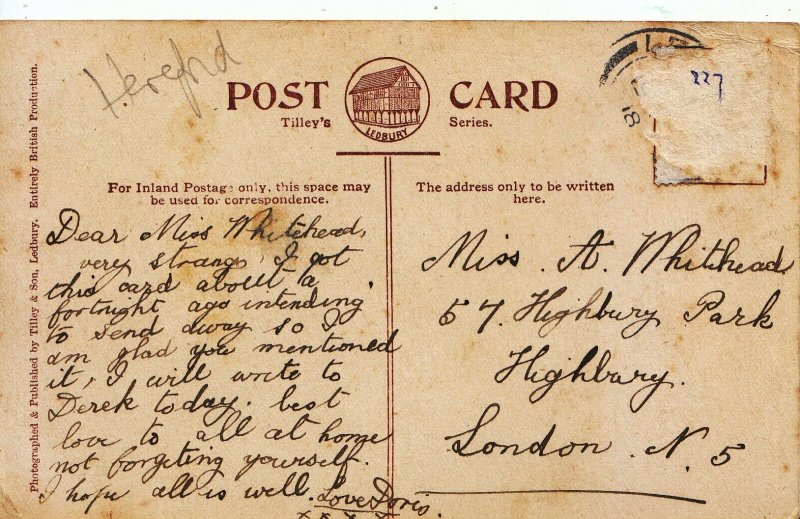 Hereford
POST CARD
Tilley's Series.
LEDBURY
227
18
For Inland Postage only, this space may
be used for correspondence.
The address only to be written
here.
Dear Miss Whitehead,
very strange, I got
this card about a
fortnight ago intending
to send away so I
am glad you mentioned
it, I will write to
Derek today. best
love to all at home
not forgeting yourself.
I hope all is well. Love Doris.
x x x x
Miss. A. Whitehead
57. Highbury Park
Highbury.
London. N. 5
Photographed & Published by Tilley & Son, Ledbury. Entirely British Production.